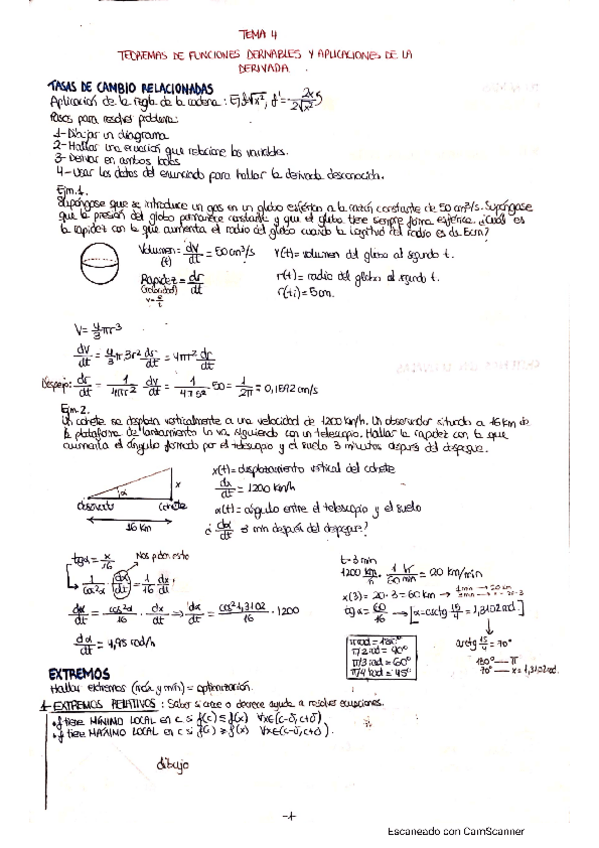 TEMA 4
TEOREMAS DE FUNCIONES DERIVABLES Y APLICACIONES DE LA
DERIVADA.
TASAS DE CAMBIO RELACIONADAS
Aplicación de la regla de la cadena:
Pasos para resolver problema:
1-Dibujar un diagrama
2-Hallar una ecuación que relacione las variables.
3-Derivar en ambos lados
4-Usar los datos del enunciado para hallar la derivada desconocida.
Ejm.1.
Supóngase que se introduce un gas en un globo esférico a la razón constante de 50 cm³/s. Supóngase
que la presión del globo permanece constante y que el globo tiene siempre forma esférica. ¿Cuál es
la rapidez con la que aumenta el radio del globo cuando la longitud del radio es de 5cm?
Volumen = dv/dt = 50 cm³/s
(t)
V(t)=volumen del globo al segundo t.
Rapidez = dr/dt
(velocidad)
r(t)= radio del globo al segundo t.
r(ti)= 5cm.
V= 4/3 πr³
dv/dt = 4/3 π 3r² dr/dt = 4πr² dr/dt
Despejo: dr/dt = 1/4πr² dv/dt = 1/4π5² · 50 = 1/2π = 0,1592 cm/s
Ejm.2.
Un cohete se desplaza verticalmente a una velocidad de 1200 km/h. Un observador situado a 16 km de
la plataforma de lanzamiento lo va siguiendo con un telescopio. Hallar la rapidez con la que
aumenta el ángulo formado por el telescopio y el suelo 3 minutos después del despegue.
x
α
observador cohete
16 Km
x(t)= desplazamiento vertical del cohete
dx/dt = 1200 km/h
α(t)= ángulo entre el telescopio y el suelo
¿ dα/dt 3 min después del despegue?
tgα = x/16
Nos piden este
1/cos²α · dα/dt = 1/16 dx/dt
dα/dt = cos²α/16 · dx/dt → dα/dt = cos²1,3102/16 · 1200
dα/dt = 4,95 rad/h
t=3 min
1200 km/h · 1 h/60 min = 20 km/min
x(3)= 20·3 = 60 km
tgα = 60/16 → α=arctg 15/4 = 1,3102 rad
π rad = 180°
π/2 rad = 90°
π/3 rad = 60°
π/4 rad = 45°
arctg 15/4 = 70°
180° — π
70° — x = 1,3102 rad
EXTREMOS
Hallar extremos (máx y mín) = optimización.
1- EXTREMOS RELATIVOS: Saber si crece o decrece ayuda a resolver ecuaciones.
• f tiene MÍNIMO LOCAL en c si f(c) ≤ f(x) ∀x∈(c-δ, c+δ)
• f tiene MÁXIMO LOCAL en c si f(c) ≥ f(x) ∀x∈(c-δ, c+δ).
dibujo
-1-
Escaneado con CamScanner